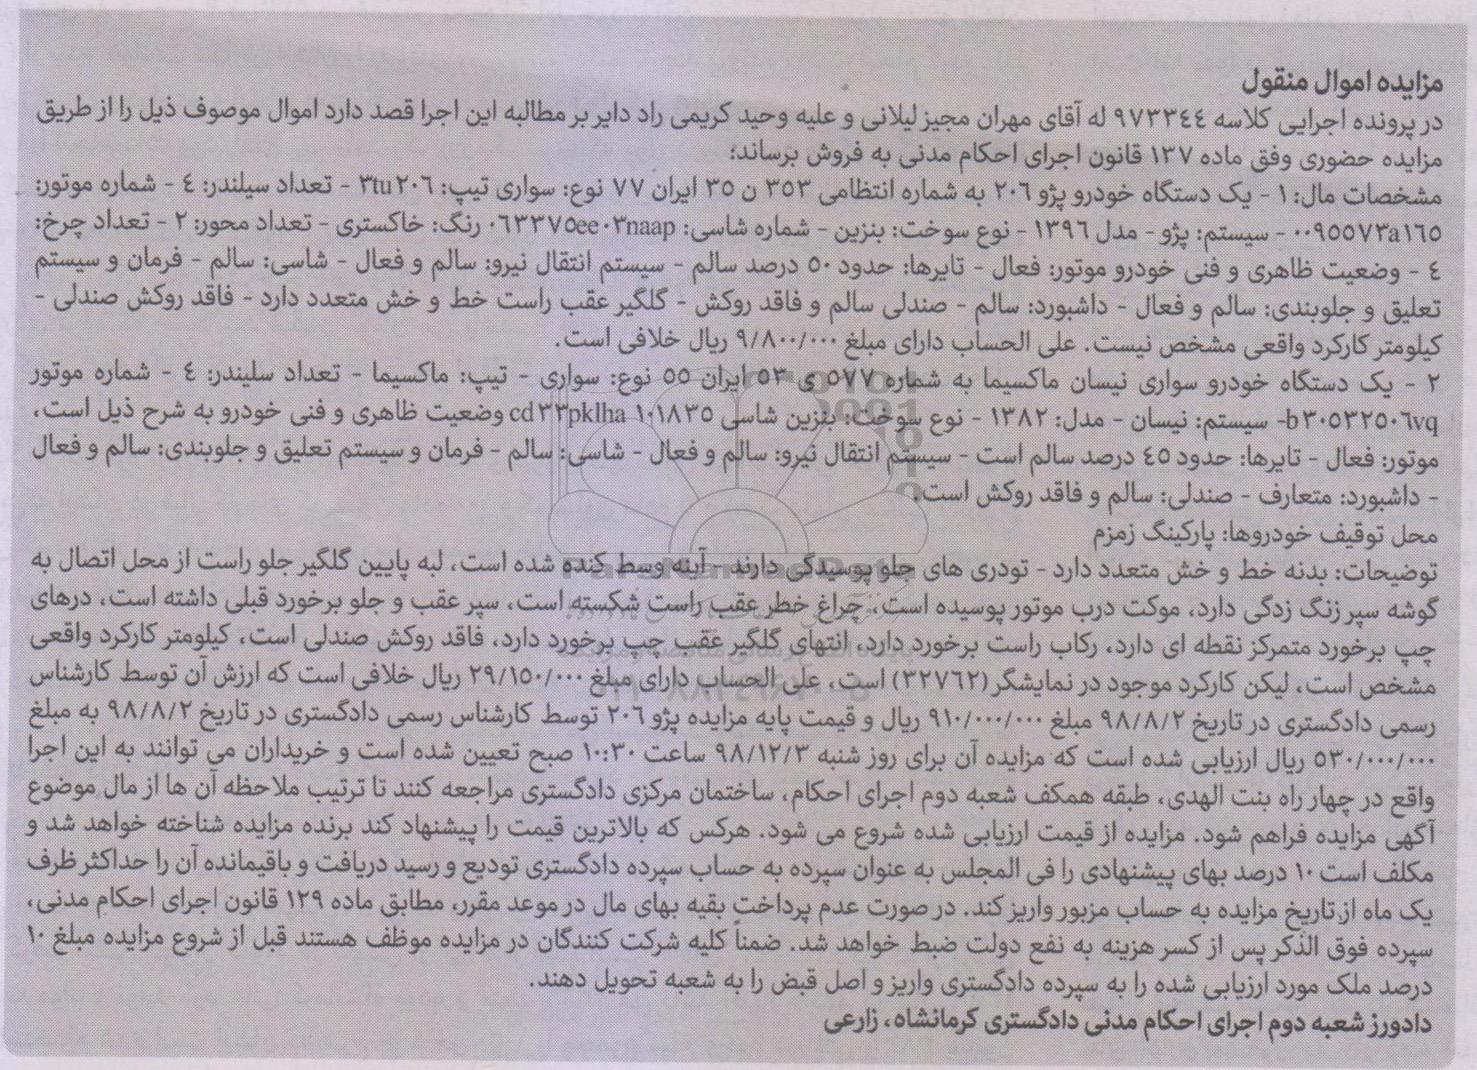 مزایده اموال منقول
در پرونده اجرایی کلاسه ۹۷۳۳٤٤ له آقای مهران مجیز لیلانی و علیه وحید کریمی راد دایر بر مطالبه این اجرا قصد دارد اموال موصوف ذیل را از طریق
مزایده حضوری وفق ماده ۱۳۷ قانون اجرای احکام مدنی به فروش برساند؛
مشخصات مال: ۱ - یک دستگاه خودرو پژو ۲۰٦ به شماره انتظامی ۳٥۳ ن ۳٥ ایران ۷۷ نوع: سواری تیپ: ۳tu۲۰٦ - تعداد سیلندر: ٤ - شماره موتور:
۰۰۹٥٥۷۳a۱٦٥ - سیستم: پژو - مدل ۱۳۹٦ - نوع سوخت: بنزین - شماره شاسی: ۰٦۳۳۷٥ee۰۳naap رنگ: خاکستری - تعداد محور: ۲ - تعداد چرخ:
٤ - وضعیت ظاهری و فنی خودرو موتور: فعال - تایرها: حدود ٥۰ درصد سالم - سیستم انتقال نیرو: سالم و فعال - شاسی: سالم - فرمان و سیستم
تعلیق و جلوبندی: سالم و فعال - داشبورد: سالم - صندلی سالم و فاقد روکش - گلگیر عقب راست خط و خش متعدد دارد - فاقد روکش صندلی -
کیلومتر کارکرد واقعی مشخص نیست. علی الحساب دارای مبلغ ۹/۸۰۰/۰۰۰ ریال خلافی است.
۲ - یک دستگاه خودرو سواری نیسان ماکسیما به شماره ٥۷۷ ی ٥۳ ایران ٥٥ نوع: سواری - تیپ: ماکسیما - تعداد سلیندر: ٤ - شماره موتور
b۳۰٥۳۲٥۰٦vq- سیستم: نیسان - مدل: ۱۳۸۲ - نوع سوخت: بنزین شاسی ۱۰۱۸۳٥ cd۳۳pklha وضعیت ظاهری و فنی خودرو به شرح ذیل است،
موتور: فعال - تایرها: حدود ٤٥ درصد سالم است - سیستم انتقال نیرو: سالم و فعال - شاسی: سالم - فرمان و سیستم تعلیق و جلوبندی: سالم و فعال
- داشبورد: متعارف - صندلی: سالم و فاقد روکش است.
محل توقیف خودروها: پارکینگ زمزم
توضیحات: بدنه خط و خش متعدد دارد - تودری های جلو پوسیدگی دارند - آینه وسط کنده شده است، لبه پایین گلگیر جلو راست از محل اتصال به
گوشه سپر زنگ زدگی دارد، موکت درب موتور پوسیده است، چراغ خطر عقب راست شکسته است، سپر عقب و جلو برخورد قبلی داشته است، درهای
چپ برخورد متمرکز نقطه ای دارد، رکاب راست برخورد دارد، انتهای گلگیر عقب چپ برخورد دارد، فاقد روکش صندلی است، کیلومتر کارکرد واقعی
مشخص است، لیکن کارکرد موجود در نمایشگر (۳۲۷٦۲) است، علی الحساب دارای مبلغ ۲۹/۱٥۰/۰۰۰ ریال خلافی است که ارزش آن توسط کارشناس
رسمی دادگستری در تاریخ ۹۸/۸/۲ مبلغ ۹۱۰/۰۰۰/۰۰۰ ریال و قیمت پایه مزایده پژو ۲۰٦ توسط کارشناس رسمی دادگستری در تاریخ ۹۸/۸/۲ به مبلغ
٥۳۰/۰۰۰/۰۰۰ ریال ارزیابی شده است که مزایده آن برای روز شنبه ۹۸/۱۲/۳ ساعت ۱۰:۳۰ صبح تعیین شده است و خریداران می توانند به این اجرا
واقع در چهار راه بنت الهدی، طبقه همکف شعبه دوم اجرای احکام، ساختمان مرکزی دادگستری مراجعه کنند تا ترتیب ملاحظه آن ها از مال موضوع
آگهی مزایده فراهم شود. مزایده از قیمت ارزیابی شده شروع می شود. هرکس که بالاترین قیمت را پیشنهاد کند برنده مزایده شناخته خواهد شد و
مکلف است ۱۰ درصد بهای پیشنهادی را فی المجلس به عنوان سپرده به حساب سپرده دادگستری تودیع و رسید دریافت و باقیمانده آن را حداکثر ظرف
یک ماه از تاریخ مزایده به حساب مزبور واریز کند. در صورت عدم پرداخت بقیه بهای مال در موعد مقرر، مطابق ماده ۱۲۹ قانون اجرای احکام مدنی،
سپرده فوق الذکر پس از کسر هزینه به نفع دولت ضبط خواهد شد. ضمناً کلیه شرکت کنندگان در مزایده موظف هستند قبل از شروع مزایده مبلغ ۱۰
درصد ملک مورد ارزیابی شده را به سپرده دادگستری واریز و اصل قبض را به شعبه تحویل دهند.
دادورز شعبه دوم اجرای احکام مدنی دادگستری کرمانشاه، زارعی